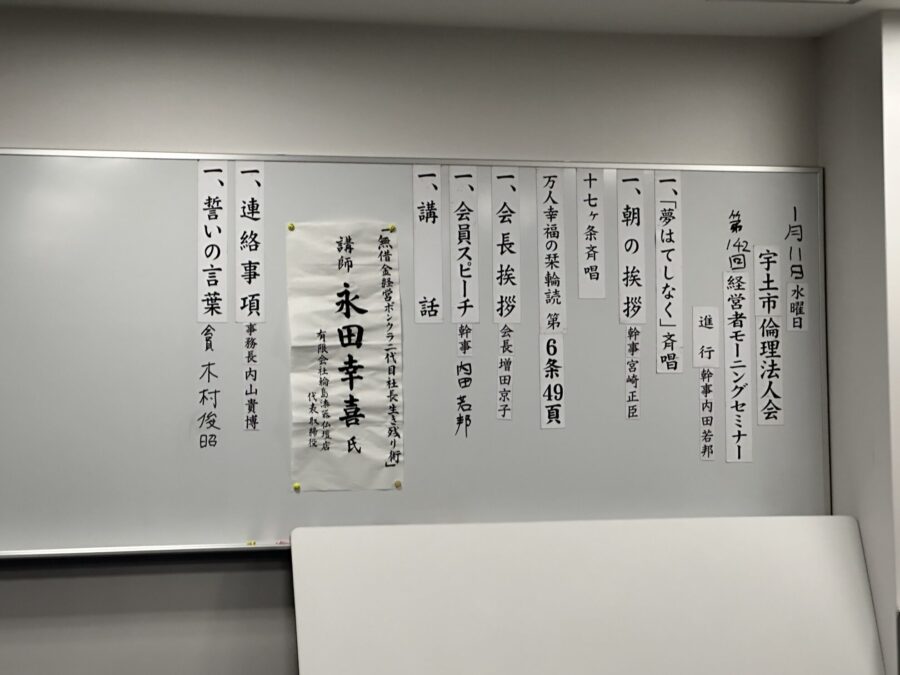 1月11日水曜日
宇土市倫理法人会
第142回経営者モーニングセミナー
進行 幹事内田若邦
一、「夢はてしなく」斉唱
一、朝の挨拶 幹事宮崎正臣
十七ヶ条斉唱
万人幸福の栞輪読 第6条49頁
一、会長挨拶 会長増田京子
一、会員スピーチ 幹事内田若邦
一、講話
「無借金経営ボンクラ二代目社長生き残り術」
講師 永田幸喜氏
有限会社輪島漆器仏壇店
代表取締役
一、連絡事項 事務長内山貴博
一、誓いの言葉 会員 木村俊昭